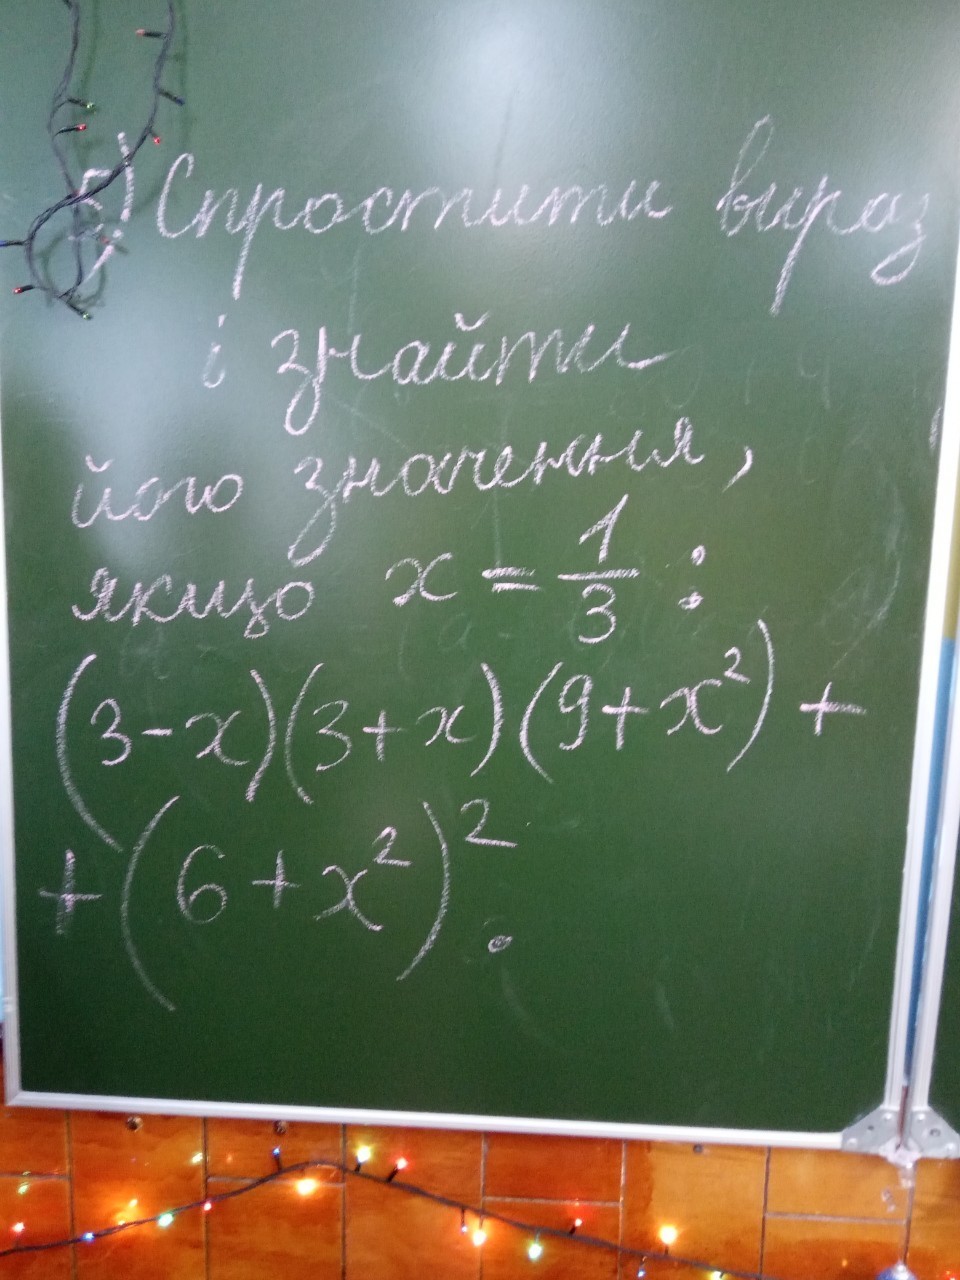 5) Спростити вираз
і знайти
його значення,
якщо x = 1/3 :
(3-x)(3+x)(9+x²) +
+ (6+x²)².